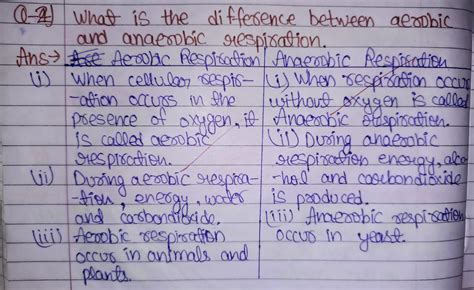 Q-2) What is the difference between aerobic
and anaerobic respiration.
Ans→ Aerobic Respiration | Anaerobic Respiration
(i) When cellular respir-
-ation occurs in the
presence of oxygen, it
is called aerobic
respiration.
(ii) During aerobic respira-
-tion, energy, water
and carbondioxide.
(iii) Aerobic respiration
occur in animals and
plants.
(i) When respiration occurs
without oxygen is called
Anaerobic respiration.
(ii) During anaerobic
respiration energy, alco
-hol and carbondioxide
is produced.
(iii) Anaerobic respiration
occur in yeast.